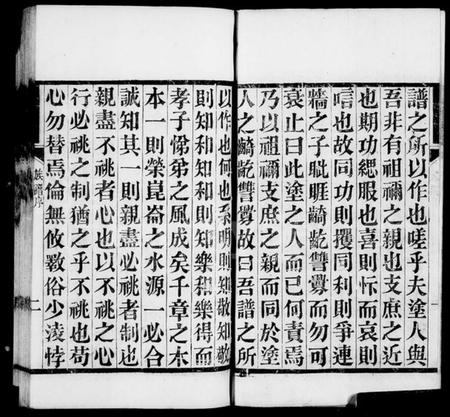 譜之所以作也嗟乎夫塗人與
吾非有祖禰之親也支庶之近
也期功緦服也喜則忻而哀則
唁也故同功則攫同利則爭連
牆之子眦睚齮齕讐釁而勿可
衰止曰此塗之人而已何責焉
乃以祖禰支庶之親而同於塗
人之齮齕讐釁故曰吾譜之所
以作也何也系明則知敬知敬
則知和知和則知樂和樂得而
孝子悌弟之風成矣千章之木
本一則榮崑崙之水源一必合
誠知其一則親盡必祧者制也
親盡不祧者心也以不祧之心
行必祧之制猶之乎不祧也苟
心勿替焉倫無攸斁俗少淩悖
族譜序
二